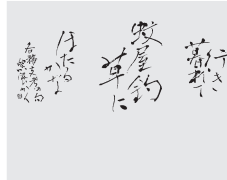 行き
暮れて
蚊屋釣
草に
ほたる
かな